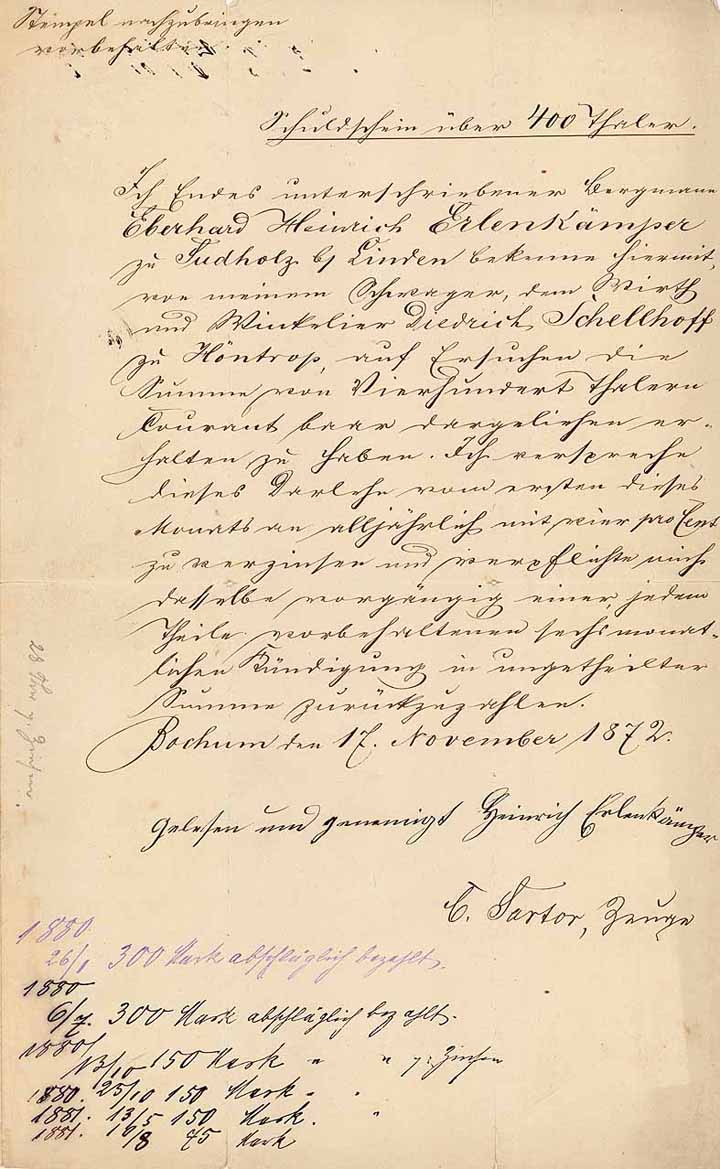 Stempel nachzubringen
vorbehalten
Schuldschein über 400 Thaler.
Ich Endes unterschriebener Bergmann
Eberhard Heinrich Erlenkämper
zu Sudholz b/ Linden bekenne hiermit,
von meinem Schwager, dem Wirth
und Winkelier Diedrich Schellhoff
zu Höntrop, auf Ersuchen die
Summe von Vierhundert Thalern
Courant baar dargeliehen er-
halten zu haben. Ich verspreche
dieses Darlehn vom ersten dieses
Monats an alljährlich mit vier pro Cent
zu verzinsen und verpflichte mich
dasselbe vorgängig einer, jedem
Theile vorbehaltenen sechsmonat-
lichen Kündigung in ungetheilter
Summe zurückzuzahlen.
Bochum den 17. November 1872.
Gelesen und genemigt Heinrich Erlenkämper
C. Sartor, Zeuge
1880.
26/1 300 Mark abschläglich bezahlt.
1880
6/7. 300 Mark abschläglich bezahlt.
1880/
13/10 150 Mark " " Zinsen
1880. 25/10 150 Mark "
1881. 13/5 150 Mark. "
1881. 16/8 75 Mark